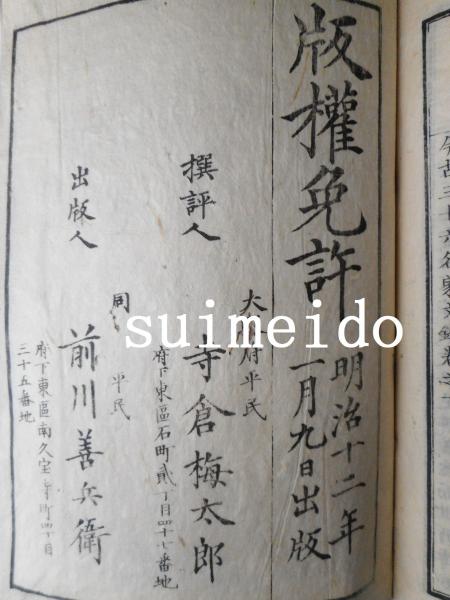 版權免許
明治十二年
一月九日出版
大 府平民
撰評人
寺倉梅太郎
府下東區石町貳丁目四十七番地
同 平民
出版人
前川善兵衛
府下東區南久宝寺町四丁目
三十五番地
suimeido